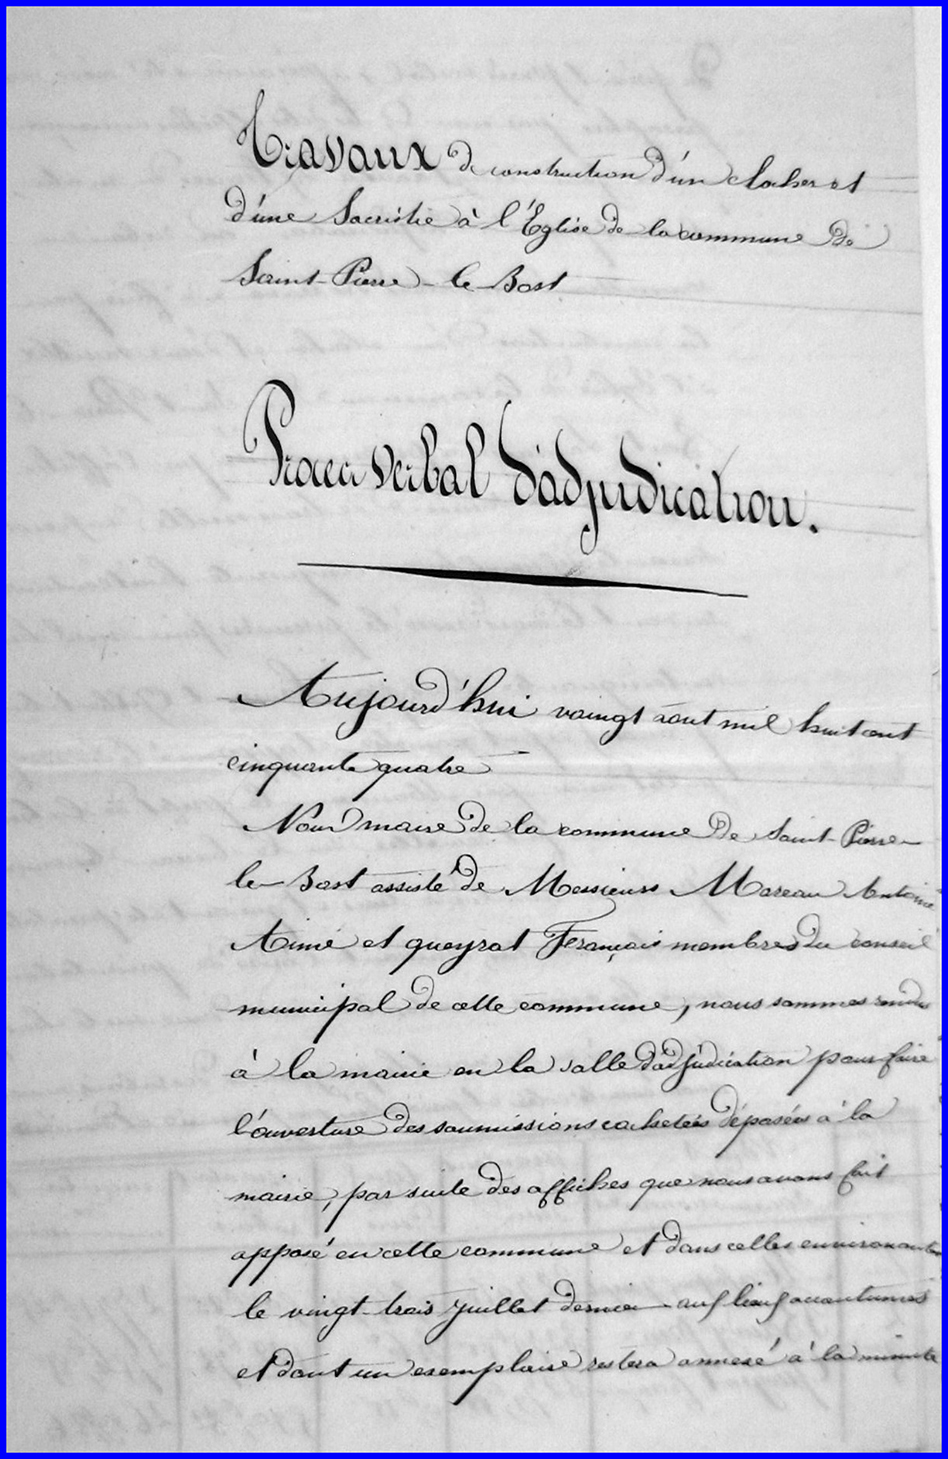 Travaux de construction d'un clocher et
d'une Sacristie à l'Eglise de la commune de
Saint-Pierre-le-Bost
Procès verbal d'adjudication.
Aujourd'hui vaingt aout mil huit cent
cinquante quatre
Nous maire de la commune de Saint-Pierre-
le-Bost assisté de Messieurs Moreau Antoine
Aimé et queyrat François membres du conseil
municipal de cette commune, nous sommes rendu
à la mairie en la salle d'adjudication pour faire
l'ouverture des soumissions cachetées déposées à la
mairie, par suite des affiches que nous avons fait
apposé en cette commune et dans celles environantes
le vingt-trois juillet dernier aux lieux accoutumés
et dont un exemplaire restera annexé à la minute